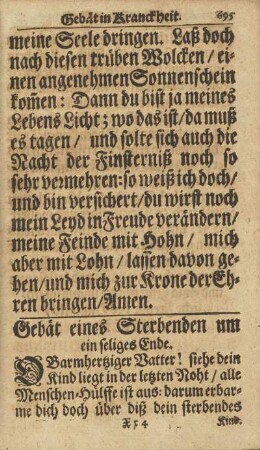 Gebät in Kranckheit. 695
meine Seele dringen. Laß doch
nach diesen trüben Wolcken / ei-
nen angenehmen Sonnenschein
kom̃en: Dann du bist ja meines
Lebens Licht; wo das ist / da muß
es tagen / und solte sich auch die
Nacht der Finsterniß noch so
sehr vermehren: so weiß ich doch /
und bin versichert / du wirst noch
mein Leyd in Freude verändern /
meine Feinde mit Hohn / mich
aber mit Lohn / lassen davon ge-
hen / und mich zur Krone der Eh-
ren bringen / Amen.
Gebät eines Sterbenden um
ein seliges Ende.
O Barmhertziger Vatter! siehe dein
Kind liegt in der letzten Noht / alle
Menschen-Hülffe ist aus: darum erbar-
me dich doch über diß dein sterbendes
X x 4 Kind.